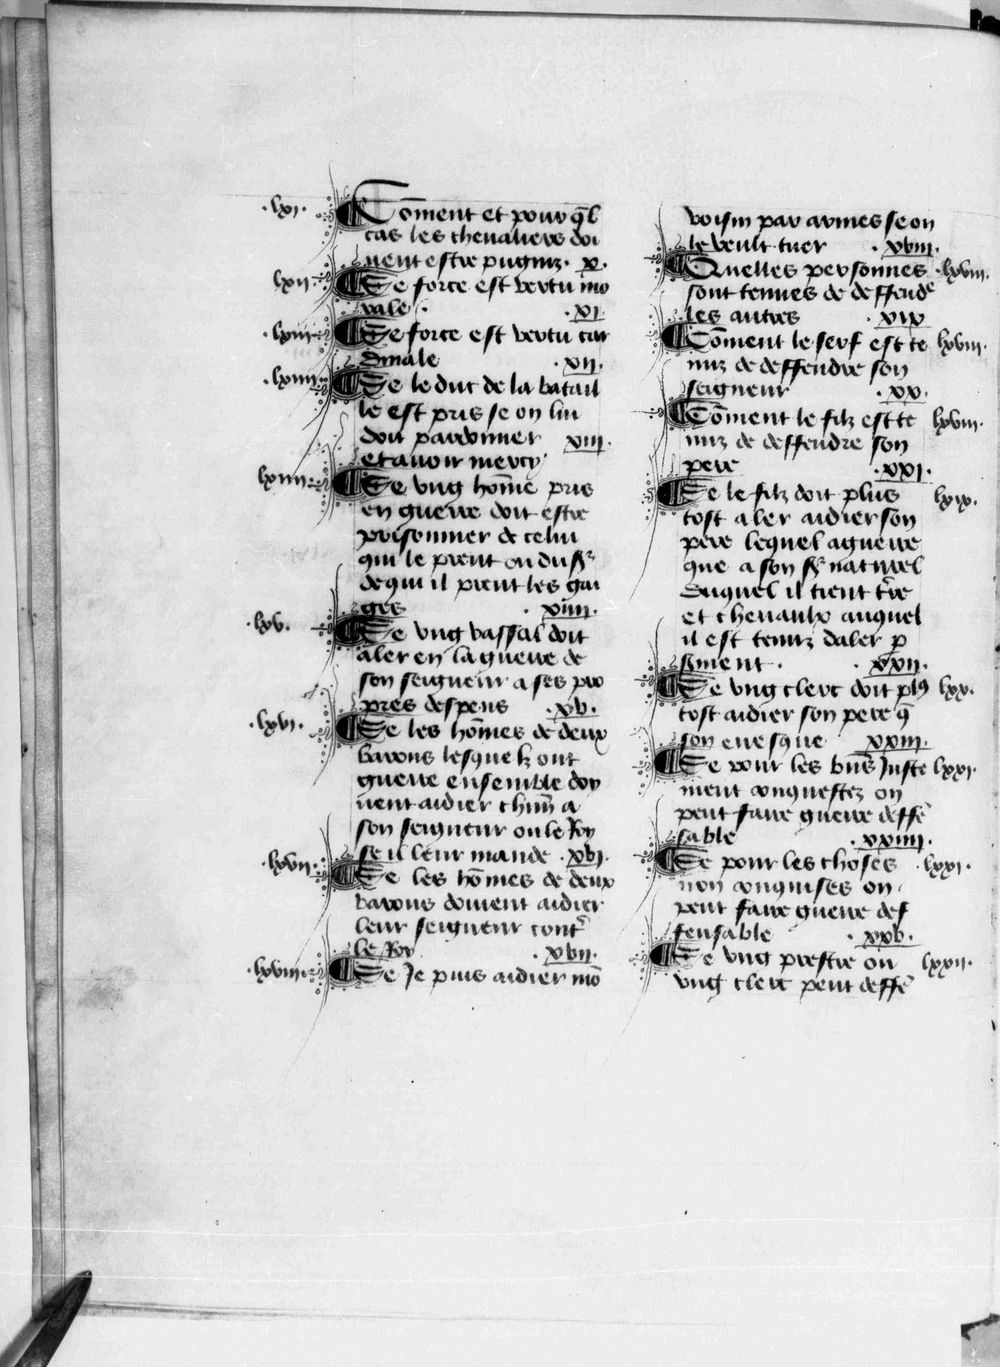 .lxi. Cõment et pour q̃l
cas les cheualiers doi
uent estre pugniz . x.
lxii. Se force est vertu mo
rale . xi
.lxiii. Se force est vertu car
dinale . xii.
.lxiiii. Se le duc de la batail
le est pris se on lui
doit pardonner xiii
et auoir mercy
lxiiii. Se vng hom̃e pris
en guerre doit estre
prisonnier de celui
qui le prent ou du sr̃
de qui il prent les gai
ges . xiiii.
.lxv. Se vng vassal doit
aler en la guerre de
son seigneur a ses pro
pres despens . xv.
.lxvi. Se les hom̃es de deux
barons lesquelz ont
guerre ensemble doy
uent aidier chũn a
son seigneur ou le Roy
se il leur mande . xvi.
.lxvii. Se les hom̃es de deux
barons doiuent aidier
leur seigneur contr̃
le Roy . xvii.
.lxviii. Se Je puis aidier mõ
voisin par armes se on
le veult tuer . xviii.
Quelles personnes .lxviii.
sont tenues de deffendre
les autres . xix
Cõment le serf est te lxviii.
niz de deffendre son
seigneur . xx.
Cõment le filz est te lxviii.
niz de deffendre son
pere . xxi.
Se le filz doit plus lxix.
tost aler aidier son
pere lequel a guerre
que a son sr̃ naturel
duquel il tient tr̃e
et cheuaulx auquel
il est tenuz daler p̱
sment . . xxii.
Se vng clerc doit pl9 lxx.
tost aidier son pere q̃
son euesque xxiii.
Se pour les biẽs Juste lxxi.
ment conquestez on
peut faire guerre deffẽ
sable . xxiiii.
Se pour les choses .lxxi.
non conquises on
peut faire guerre def
fensable . xxv.
Se vng prestre ou lxxii.
vng clerc peut deffẽ